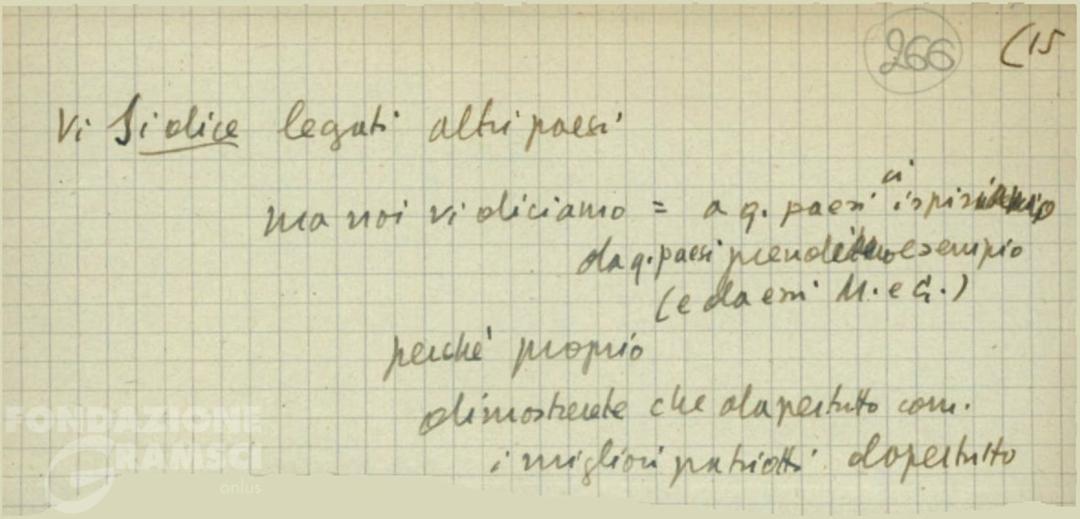 266 (15
Vi si dice legati altri paesi
ma noi vi diciamo = a q. paesi
ci
da q. paesi esempio
(e da essi M. e G.)
perchè proprio
dimostrerete che dapertutto com.
i migliori patriotti dapertutto
FONDAZIONE
GRAMSCI
onlus